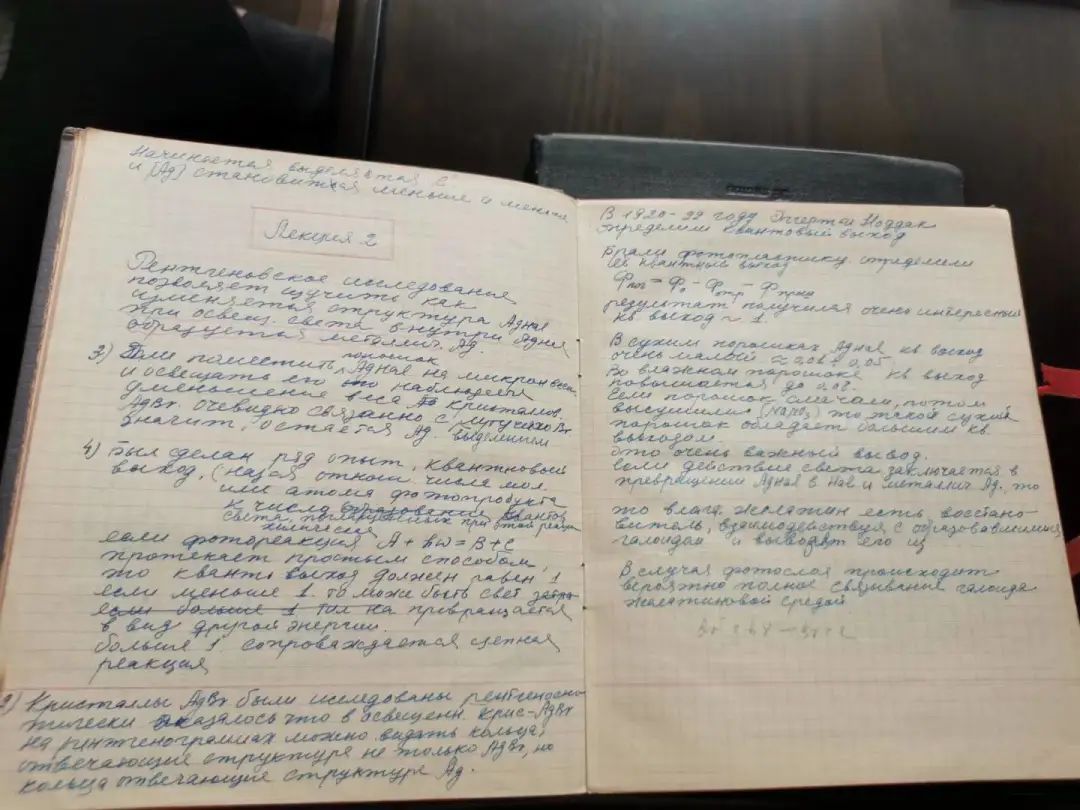 Начинается выделятся e
и [Ag] становиться меньше и меньше
Лекция 2
Рентгеновское исследование
позволяет изучить как
изменяется структура AgHal
при освещ. света внутри AgHal
образуется металлич. Ag.
3) Если поместить порошок AgHal на микровесы
и освещать его наблюдается
уменьшение веса кристаллов.
AgBr, очевидно связанно с
значит, остаётся Ag. выделением
4) Был сделан ряд опыт. квантновый
выход. (назыв отнош числа мол.
или атома фотопродукта
к числу квантов
света, поглощенных при этой реак
химической
если фотореакция A + hω = B + C
протекает простым способом,
то квант. выход должен равен 1
если меньше 1. то може быть свет
если больше 1 превращается
в вид другой энергии.
больше 1 сопровождается цепная
реакция
2) Кристаллы AgBr были исследованы рентгеноско-
пически оказалось что в освещенн. крис-AgBr
на рентгенограммах можно видеть кольца,
отвечающие структуре не только AgBr, но
кольца отвечающие структуре Ag.
В 1920-22 году Эггерт и Ноддак
определили квантовый выход
Брали фотопластинку. определили
её квантный выход
Фпог = Ф₀ - Фотр - Фпрош
результат получился очень интересный
кв выход ~ 1.
В сухих порошках AgHal кв выход
очень малый
Во влажном порошке кв выход
повышается до
если порошок смачали, потом
высушили (NaNO₂) то такой сухой
порошок обладает большим кв.
выходом.
это очень важный вывод.
если действие света заключается в
превращении AgHal в Hal и металлич Ag, то
то влаг. желатин есть восстано-
витель, взаимодействуя с образовавшимся
галоидом и выводят его из
В случая фотослоя происходит
вероятно полное связывание галоида
желатиновой средой